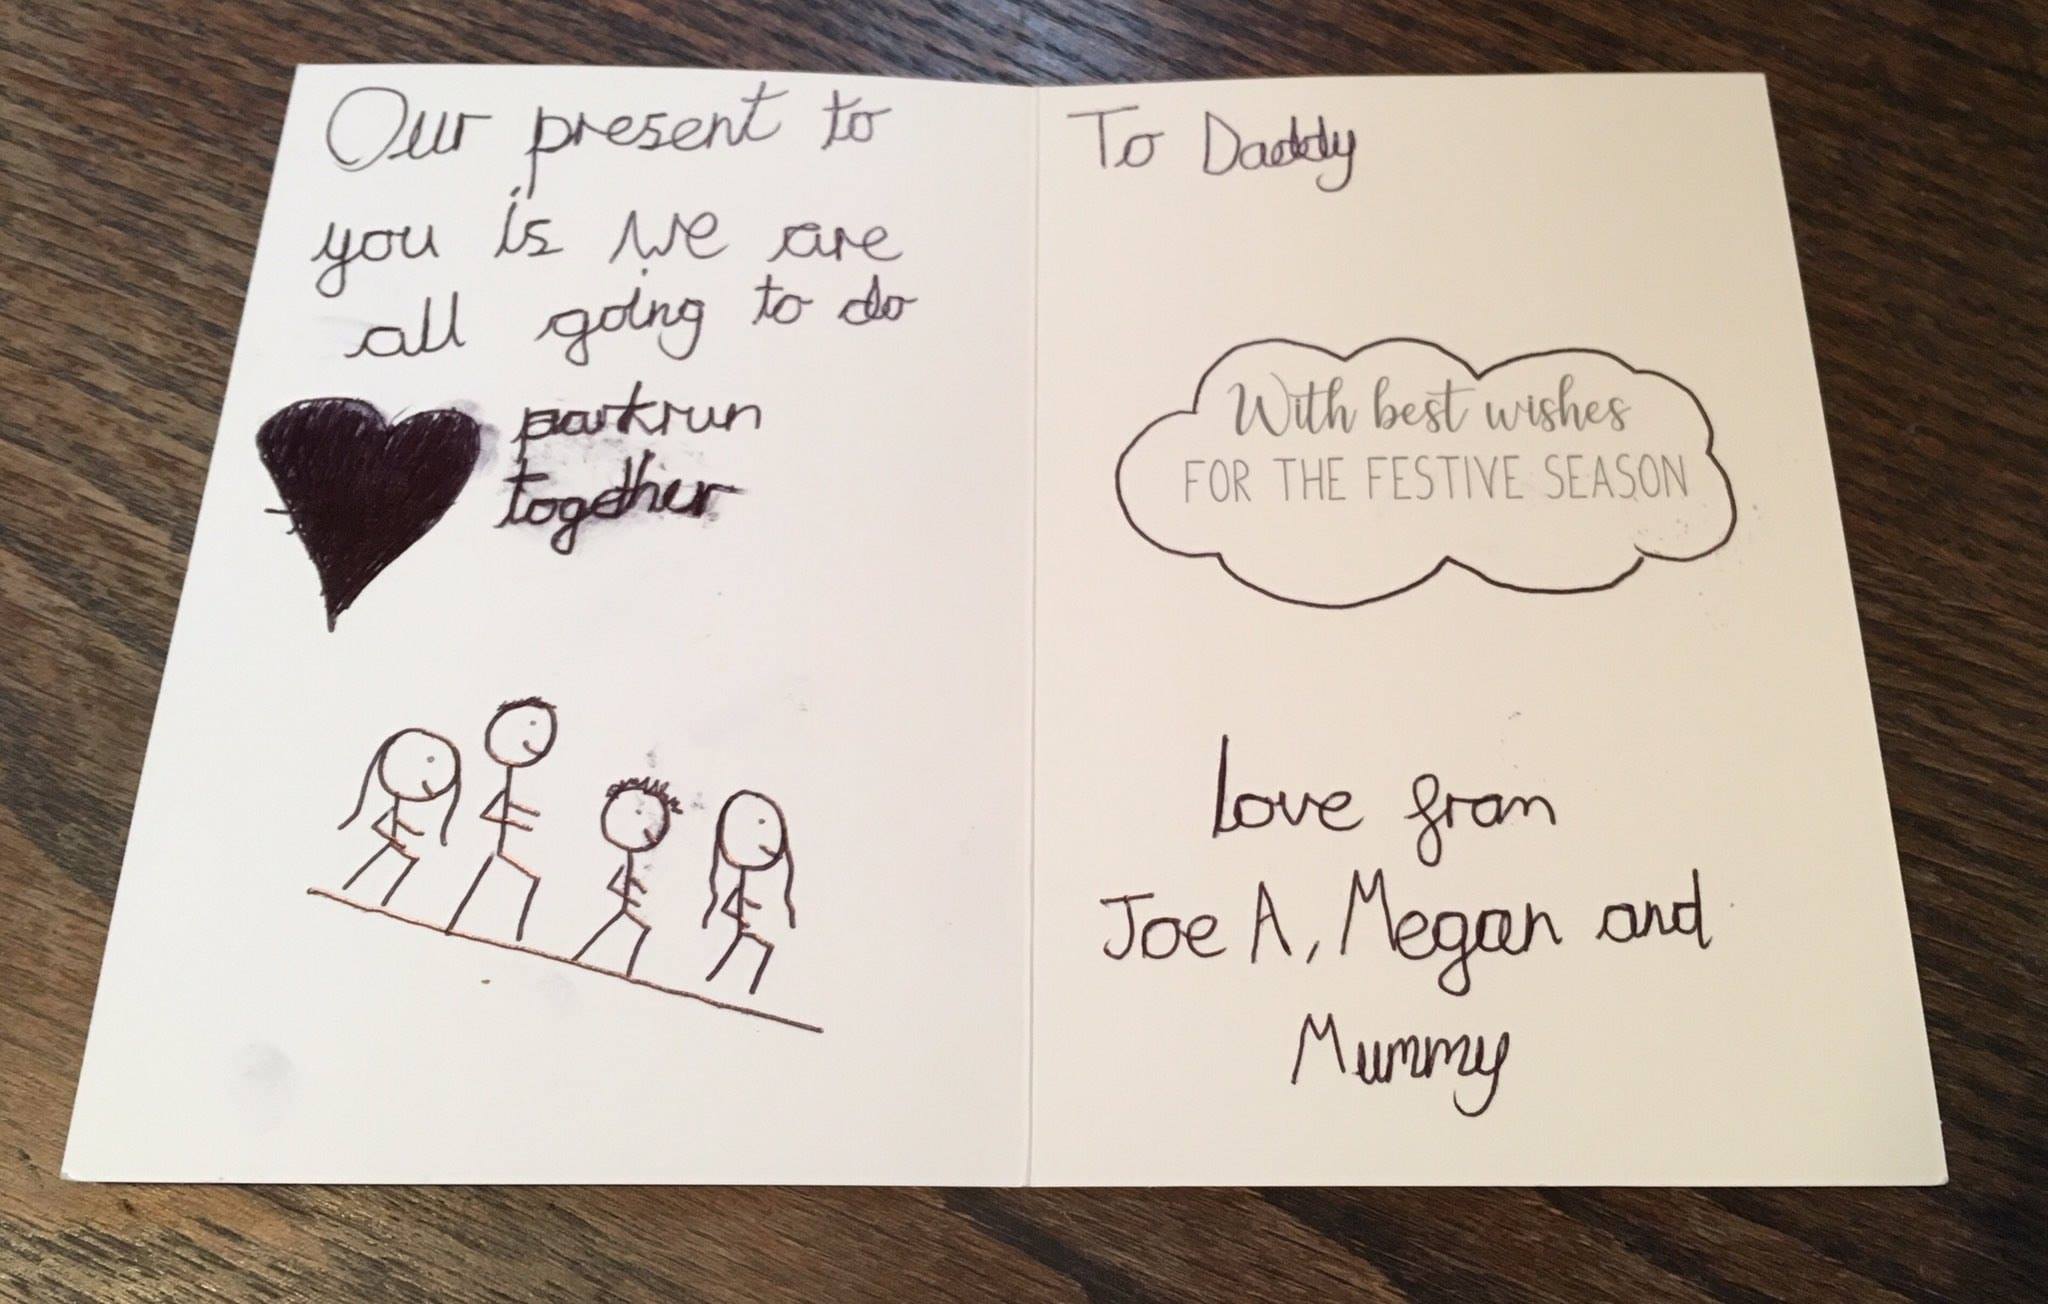 Our present to
you is we are
all going to do
parkrun
together
To Daddy
With best wishes
FOR THE FESTIVE SEASON
Love from
Joe A, Megan and
Mummy